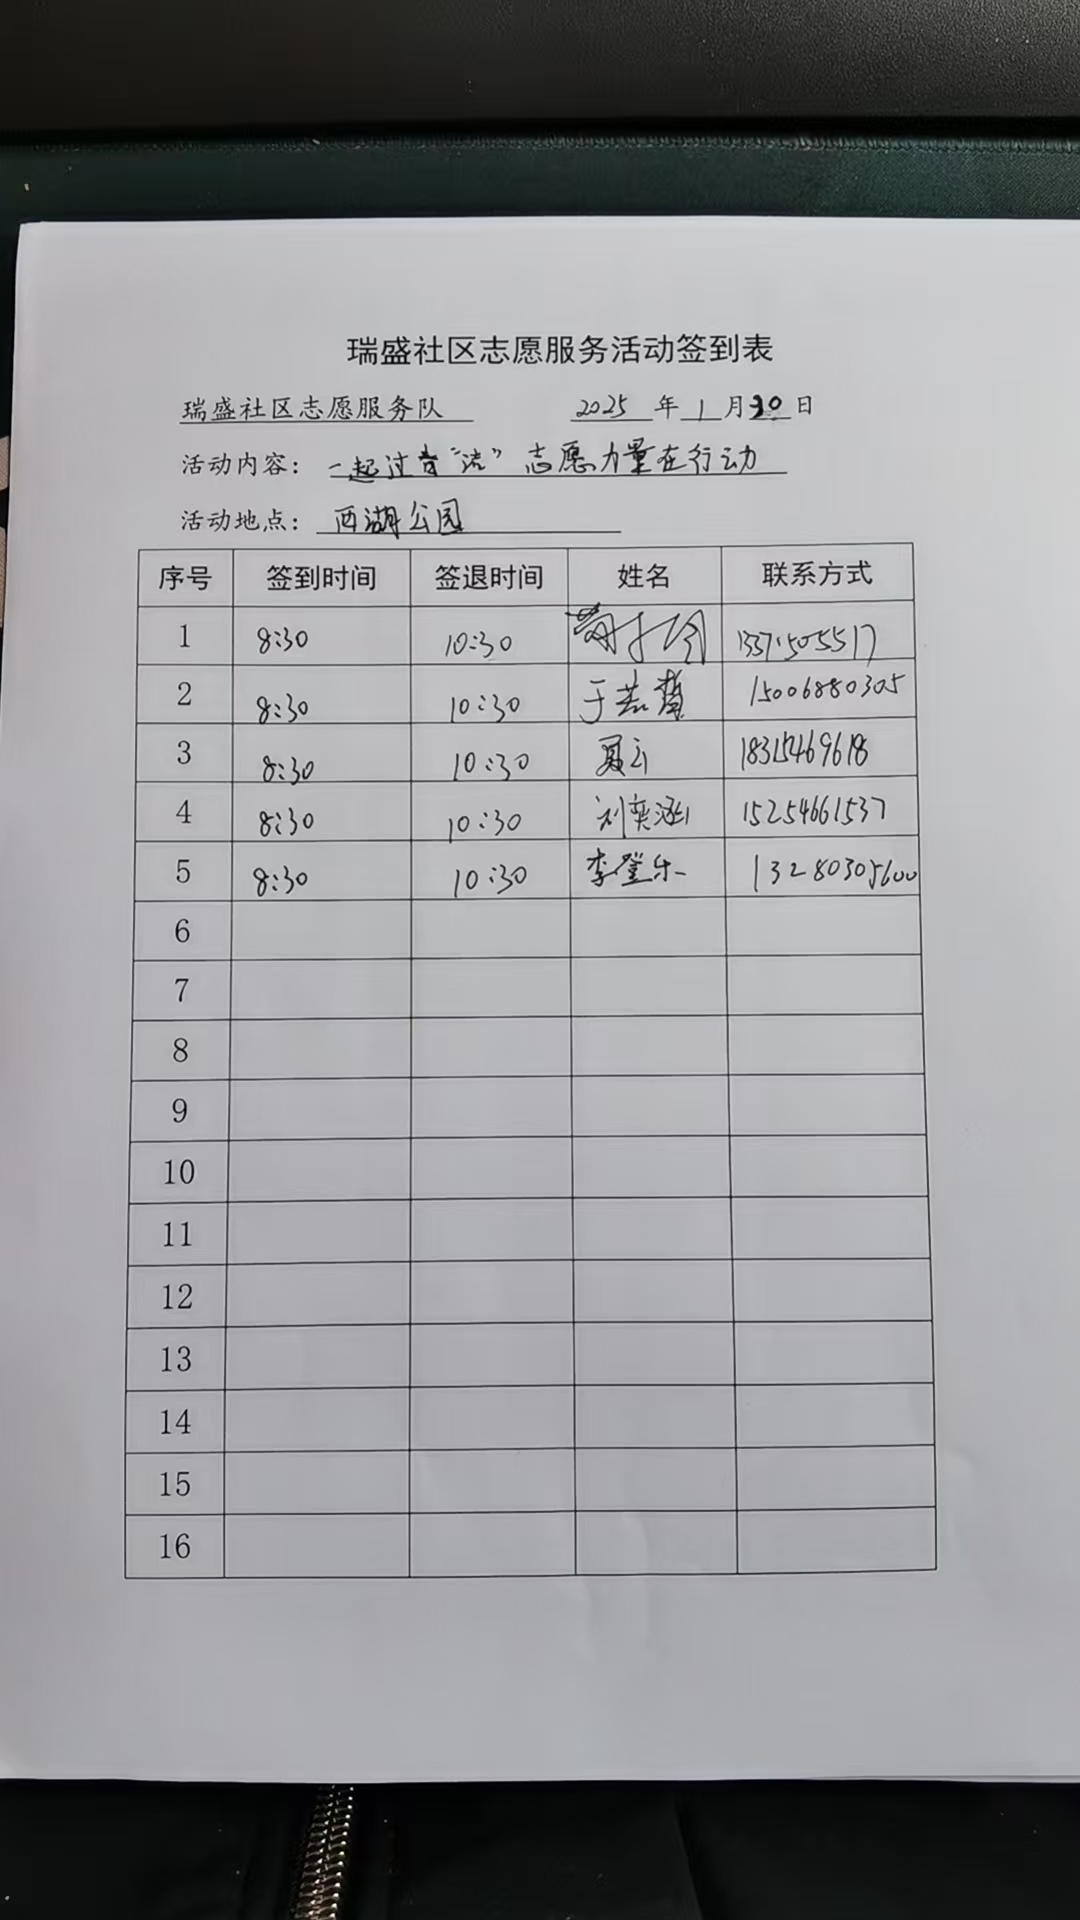 瑞盛社区志愿服务活动签到表
瑞盛社区志愿服务队 2025 年 1 月 30 日
活动内容： 一起过 “洁” 志愿力量在行动
活动地点： 西湖公园
序号 签到时间 签退时间 姓名 联系方式
1 8:30 10:30
2 8:30 10:30 于若 15006880305
3 8:30 10:30 18315469618
4 8:30 10:30 刘奕涵 15254661537
5 8:30 10:30 李登乐 13280305600
6
7
8
9
10
11
12
13
14
15
16